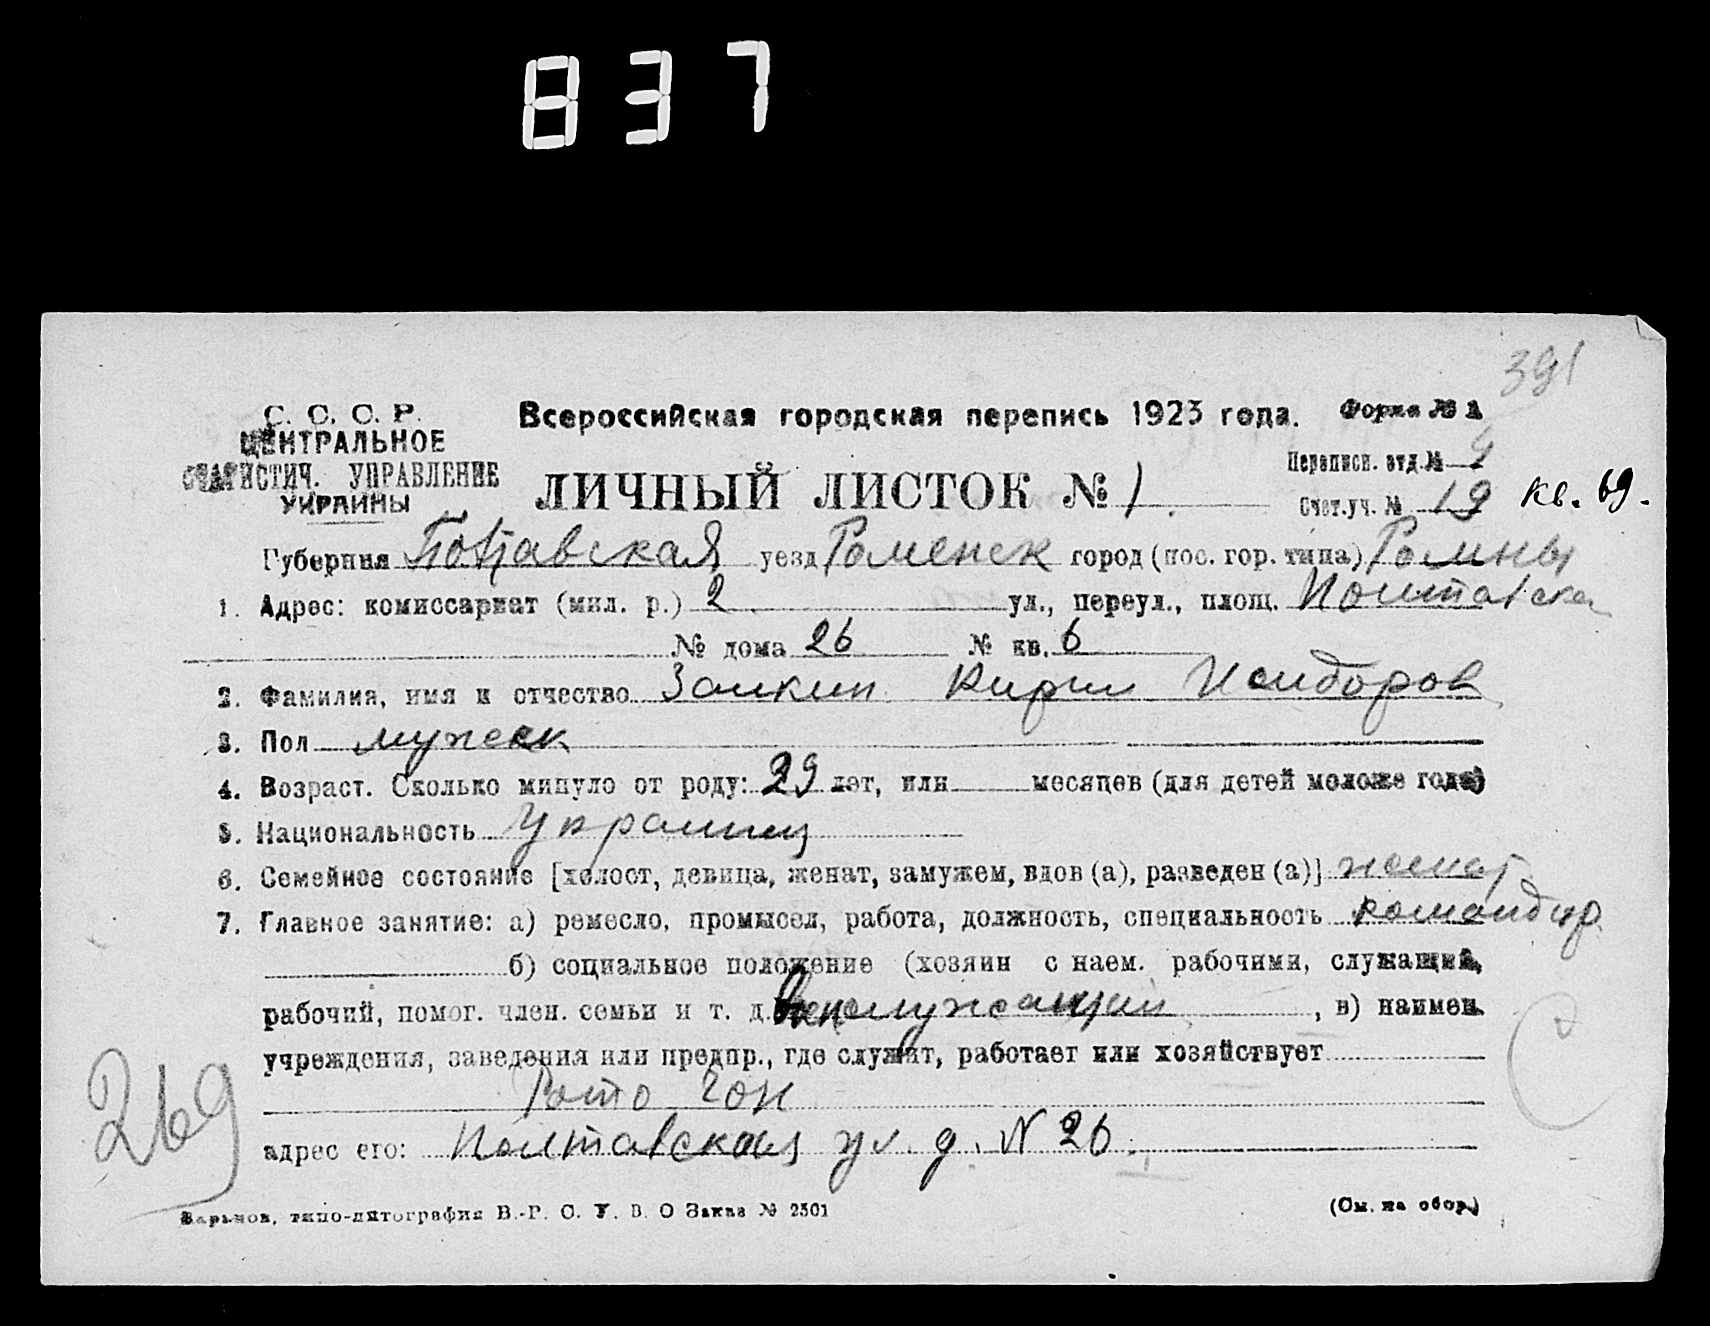 837
391
С. С. С. Р.
ЦЕНТРАЛЬНОЕ
СТАТИСТИЧ. УПРАВЛЕНИЕ
УКРАИНЫ
Всероссийская городская перепись 1923 года.
Форма № 1
ЛИЧНЫЙ ЛИСТОК № 1.
Переписн. отд. № 9
Счет. уч. № 19 кв. 69.
Губерния Полтавская уезд Роменск город (пос. гор. типа) Ромны
1. Адрес: комиссариат (мил. р.) 2 ул., переул., площ. Полтавска
№ дома 26 № кв. 6
2. Фамилия, имя и отчество Заикин Кирил Исидоров
3. Пол мужеск
4. Возраст. Сколько минуло от роду: 29 лет, или месяцев (для детей моложе года)
5. Национальность Украинец
6. Семейное состояние [холост, девица, женат, замужем, вдов (а), разведен (а)] женат
7. Главное занятие: а) ремесло, промысел, работа, должность, специальность командир
б) социальное положение (хозяин с наем. рабочими, служащий,
рабочий, помог. член. семьи и т. д. Военнослужащий, в) наимен.
учреждения, заведения или предпр., где служит, работает или хозяйствует
Рота
адрес его: Полтавская ул. д. N 26.
269
Харьков, типо-литография В.-Р. С. У. В. О Заказ № 2301
(См. на обор.)